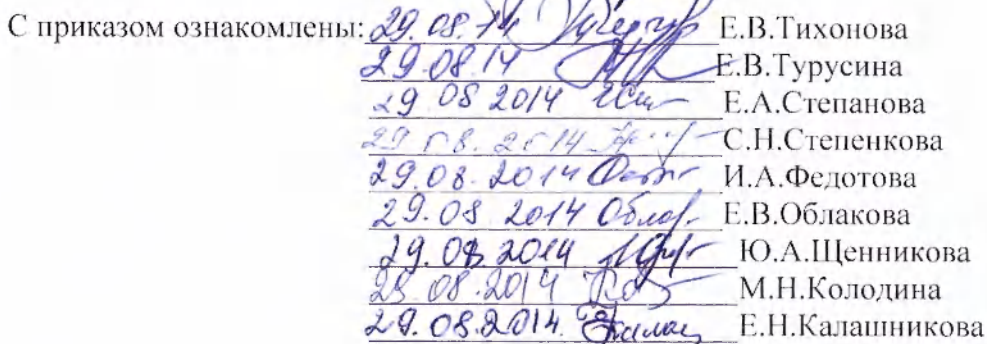 С приказом ознакомлены: 29.08.14 Е.В.Тихонова
29.08.14 Е.В.Турусина
29 08 2014 Е.А.Степанова
29.08.2014 С.Н.Степенкова
29.08.2014 И.А.Федотова
29.08 2014 Е.В.Облакова
29.08.2014 Ю.А.Щенникова
29.08.2014 М.Н.Колодина
29.08.2014. Е.Н.Калашникова